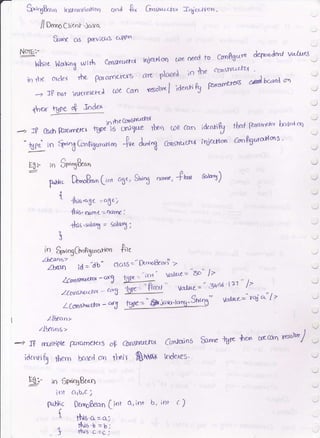 SpringBean Instantiation and for Constructor Injection.
// DemoClient.java
Same as previous appn
NOTE:-
While Working with Constructor injection we need to Configure dependent values
in the order the parameters are placed in the constructor.
→ If not interested we can resolve/identify parameters based on
their type of Index
in the constructor
→ If each Parameters type is unique then we can identify that parameter based on
"type" in SpringConfiguration file during constructor injection configurations.
Eg:- in SpringBean
public DemoBean(int age, String name, float salary)
{
this.age=age;
this.name=name;
this.salary = salary;
}
in SpringConfiguration file
<beans>
<bean id="db" class="DemoBean">
<constructor-arg type="int" value="30"/>
<constructor-arg type="float" value="3456.127"/>
<constructor-arg type="java.lang.String" value="raja"/>
</bean>
</beans>
→ If multiple parameters of constructor Contains Same type then we can resolve/
identify them based on their indexes.
Eg:- in SpringBean
int a,b,c;
public DemoBean(int a, int b, int c)
{
this.a=a;
this.b=b;
this.c=c;
}